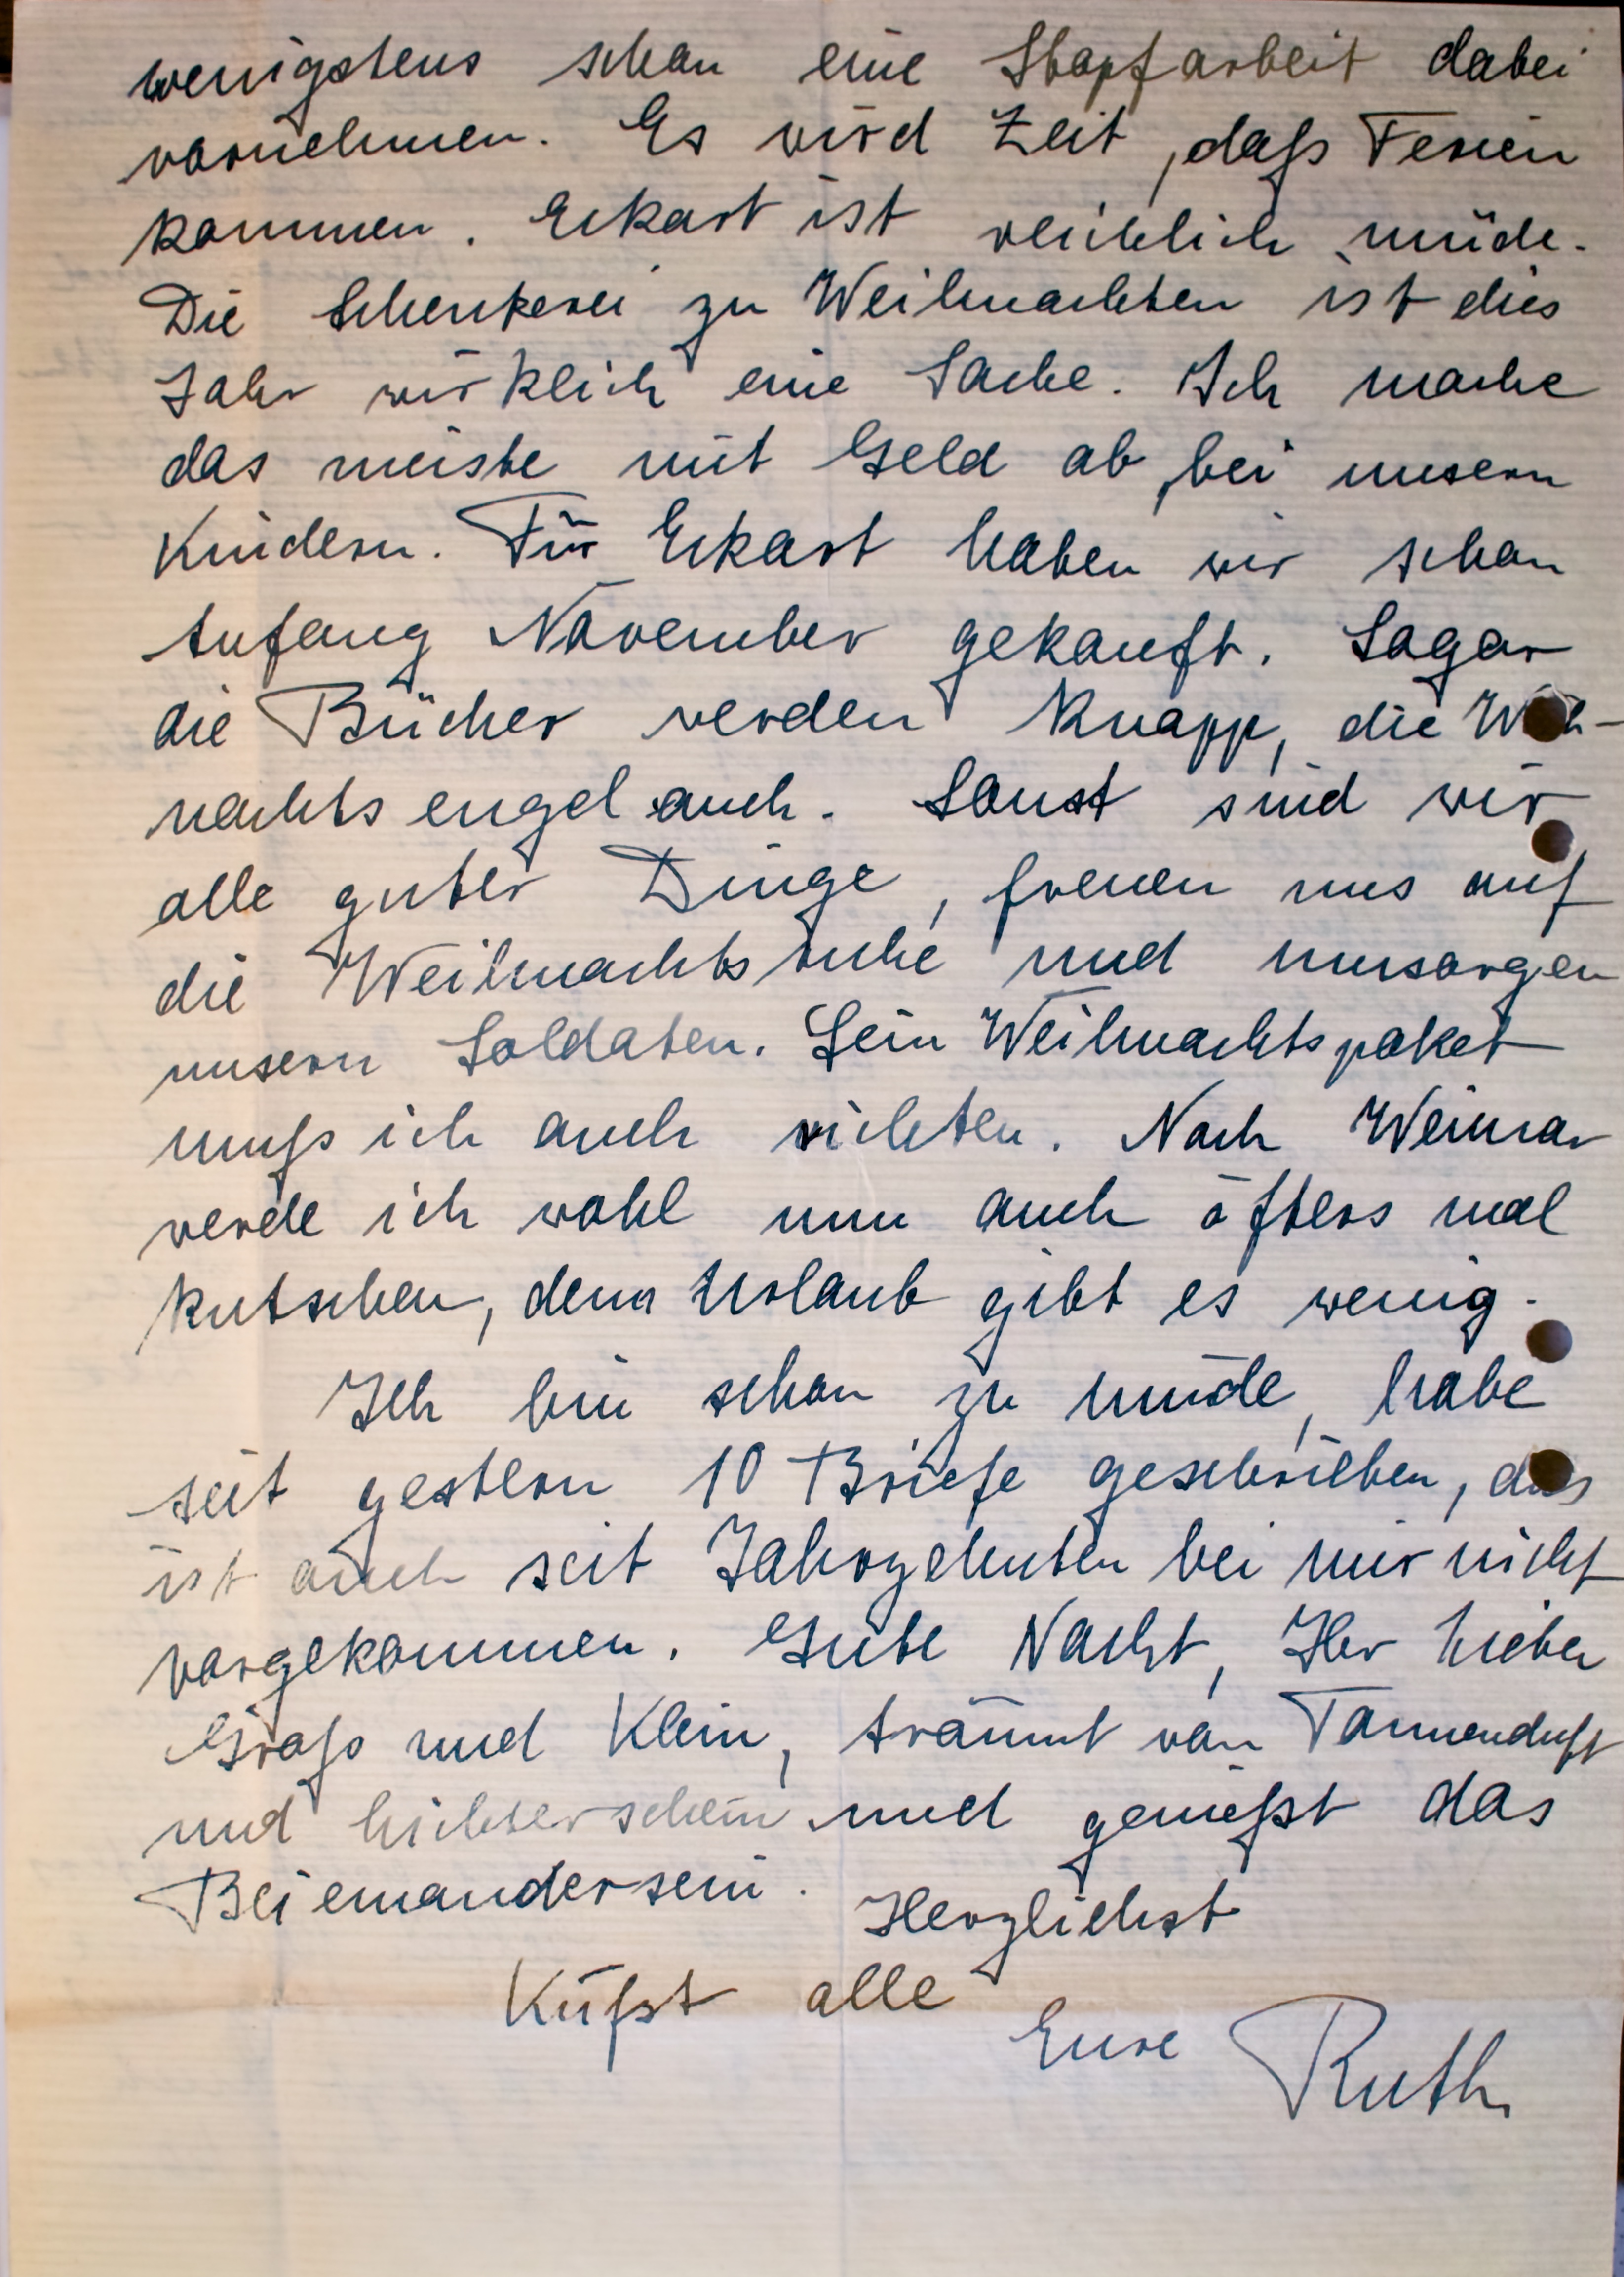 wenigstens schon eine Stopfarbeit dabei
vornehmen. Es wird Zeit, daß Ferien
kommen. Eckart ist reichlich müde.
Die Schenkerei zu Weihnachten ist dies
Jahr wirklich eine Sache. Ich mache
das meiste mit Geld ab, bei unsern
Kindern. Für Eckart haben wir schon
Anfang November gekauft. Sogar
die Bücher werden knapp, die Weih-
nachtsengel auch. Sonst sind wir
alle guter Dinge, freuen uns auf
die Weihnachtsruhe und umsorgen
unsern Soldaten. Sein Weihnachtspaket
muß ich auch richten. Nach Weimar
werde ich wohl nun auch öfters mal
kutschen, denn Urlaub gibt es wenig.
Ich bin schon zu müde, habe
seit gestern 10 Briefe geschrieben, das
ist auch seit Jahrzehnten bei mir nicht
vorgekommen. Gute Nacht, Ihr Lieben
Groß und Klein, träumt von Tannenduft
und Lichterschein und genießt das
Beieinandersein.
Herzlichst
Küßt alle
Eure Ruth